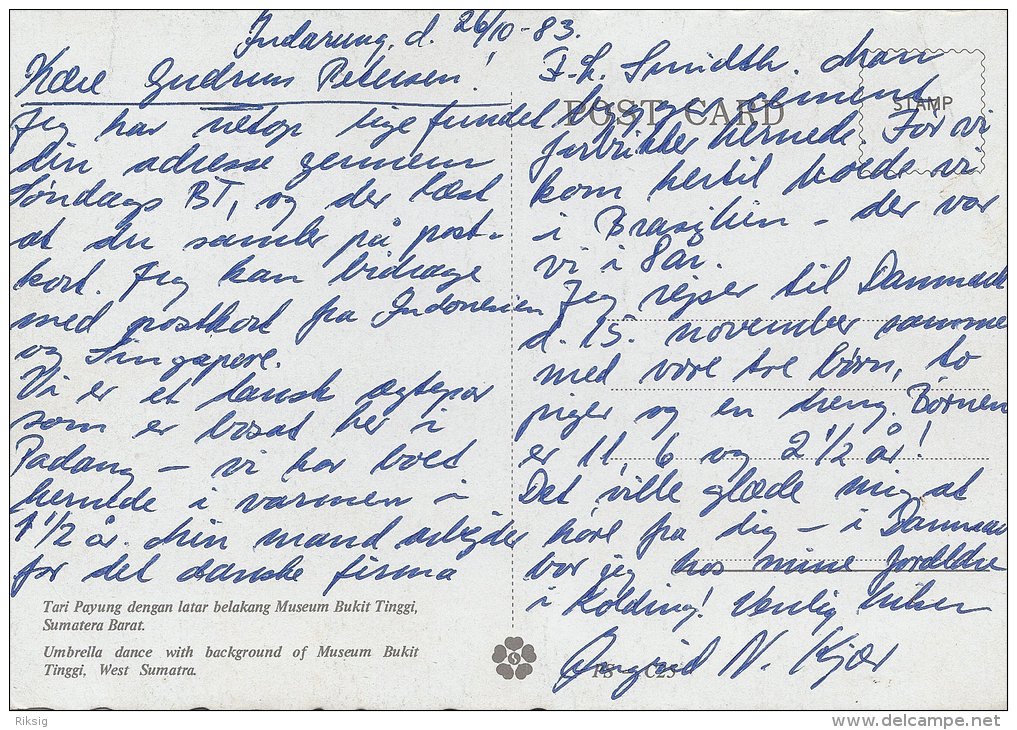 Indarung, d. 26/10-83.
Kære Gudrun Petersen!
Jeg har netop lige fundet
din adresse gennem
Søndags BT, og der læst
at du samler på post-
kort. Jeg kan bidrage
med postkort fra Indonesien
og Singapore.
Vi er et dansk ægtepar
som er bosat her i
Padang - vi har boet
hernede i varmen i
1 1/2 år. Min mand arbejder
for det danske firma
Tari Payung dengan latar belakang Museum Bukit Tinggi,
Sumatera Barat.
Umbrella dance with background of Museum Bukit
Tinggi, West Sumatra.
POST CARD
STAMP
F.L. Smidth. Man
bygger cement
fabrikker hernede. Før vi
kom hertil boede vi
i Brasilien - der var
vi i 8 år.
Jeg rejser til Danmark
d. 15. november sammen
med vore tre børn, to
piger og en dreng. Børnene
er 11, 6 og 2 1/2 år!
Det ville glæde mig at
høre fra dig - i Danmark
bor jeg hos mine forældre
i Kolding! Venlig hilsen
Ingrid N. Kjær
PS C23
Riksig
http://www.delcampe.net